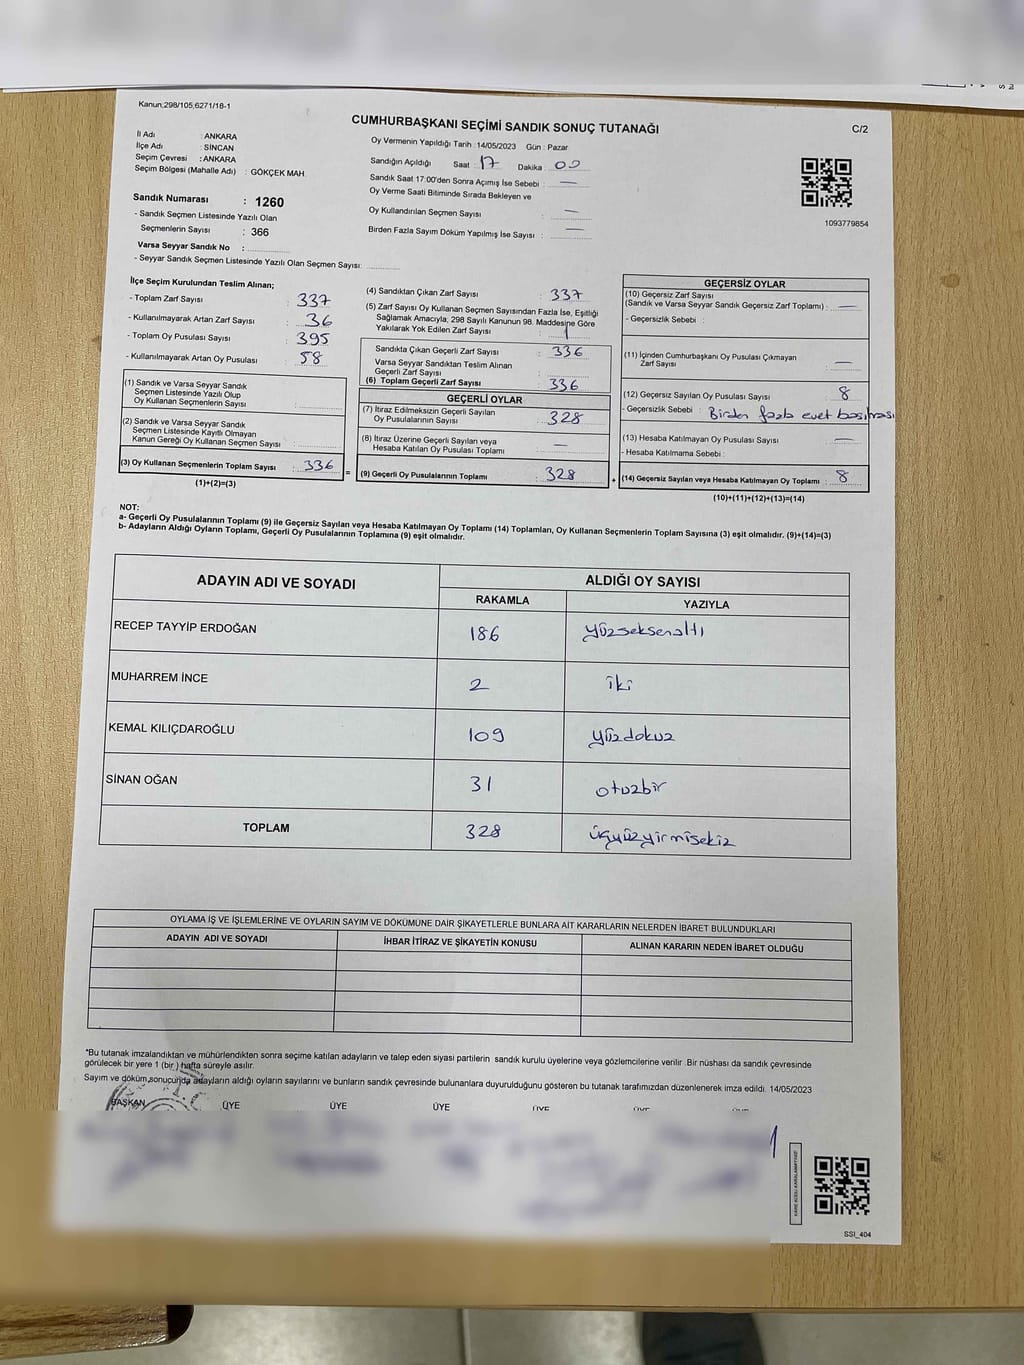 Kanun;298/105,6271/18-1
CUMHURBAŞKANI SEÇİMİ SANDIK SONUÇ TUTANAĞI
C/2
İl Adı : ANKARA
İlçe Adı : SİNCAN
Seçim Çevresi : ANKARA
Seçim Bölgesi (Mahalle Adı) : GÖKÇEK MAH.
Oy Vermenin Yapıldığı Tarih :14/05/2023 Gün : Pazar
Sandığın Açıldığı Saat : 17 Dakika : 00
Sandık Saat 17:00'den Sonra Açımış İse Sebebi : —
Oy Verme Saati Bitiminde Sırada Bekleyen ve
Oy Kullandırılan Seçmen Sayısı : —
Birden Fazla Sayım Döküm Yapılmış İse Sayısı : —
1093779854
Sandık Numarası : 1260
- Sandık Seçmen Listesinde Yazılı Olan
Seçmenlerin Sayısı : 366
Varsa Seyyar Sandık No :
- Seyyar Sandık Seçmen Listesinde Yazılı Olan Seçmen Sayısı:
İlçe Seçim Kurulundan Teslim Alınan;
- Toplam Zarf Sayısı : 337
- Kullanılmayarak Artan Zarf Sayısı : 36
- Toplam Oy Pusulası Sayısı : 395
- Kullanılmayarak Artan Oy Pusulası : 58
(1) Sandık ve Varsa Seyyar Sandık
Seçmen Listesinde Yazılı Olup
Oy Kullanan Seçmenlerin Sayısı :
(2) Sandık ve Varsa Seyyar Sandık
Seçmen Listesinde Kayıtlı Olmayan
Kanun Gereği Oy Kullanan Seçmen Sayısı :
(3) Oy Kullanan Seçmenlerin Toplam Sayısı : 336
(1)+(2)=(3)
(4) Sandıktan Çıkan Zarf Sayısı : 337
(5) Zarf Sayısı Oy Kullanan Seçmen Sayısından Fazla İse, Eşitliği
Sağlamak Amacıyla, 298 Sayılı Kanunun 98. Maddesine Göre
Yakılarak Yok Edilen Zarf Sayısı : 1
Sandıkta Çıkan Geçerli Zarf Sayısı : 336
Varsa Seyyar Sandıktan Teslim Alınan
Geçerli Zarf Sayısı :
(6) Toplam Geçerli Zarf Sayısı : 336
GEÇERLİ OYLAR
(7) İtiraz Edilmeksizin Geçerli Sayılan
Oy Pusulalarının Sayısı : 328
(8) İtiraz Üzerine Geçerli Sayılan veya
Hesaba Katılan Oy Pusulası Toplamı : —
= (9) Geçerli Oy Pusulalarının Toplamı : 328 +
GEÇERSİZ OYLAR
(10) Geçersiz Zarf Sayısı
(Sandık ve Varsa Seyyar Sandık Geçersiz Zarf Toplamı) : —
- Geçersizlik Sebebi :
(11) İçinden Cumhurbaşkanı Oy Pusulası Çıkmayan
Zarf Sayısı : —
(12) Geçersiz Sayılan Oy Pusulası Sayısı : 8
- Geçersizlik Sebebi : Birden fazla evet basılması
(13) Hesaba Katılmayan Oy Pusulası Sayısı : —
- Hesaba Katılmama Sebebi :
(14) Geçersiz Sayılan veya Hesaba Katılmayan Oy Toplamı : 8
(10)+(11)+(12)+(13)=(14)
NOT:
a- Geçerli Oy Pusulalarının Toplamı (9) ile Geçersiz Sayılan veya Hesaba Katılmayan Oy Toplamı (14) Toplamları, Oy Kullanan Seçmenlerin Toplam Sayısına (3) eşit olmalıdır. (9)+(14)=(3)
b- Adayların Aldığı Oyların Toplamı, Geçerli Oy Pusulalarının Toplamına (9) eşit olmalıdır.
ADAYIN ADI VE SOYADI ALDIĞI OY SAYISI
RAKAMLA YAZIYLA
RECEP TAYYİP ERDOĞAN 186 yüzseksenaltı
MUHARREM İNCE 2 iki
KEMAL KILIÇDAROĞLU 109 yüzdokuz
SİNAN OĞAN 31 otuzbir
TOPLAM 328 üçyüzyirmisekiz
OYLAMA İŞ VE İŞLEMLERİNE VE OYLARIN SAYIM VE DÖKÜMÜNE DAİR ŞİKAYETLERLE BUNLARA AİT KARARLARIN NELERDEN İBARET BULUNDUKLARI
ADAYIN ADI VE SOYADI İHBAR İTİRAZ VE ŞİKAYETİN KONUSU ALINAN KARARIN NEDEN İBARET OLDUĞU
*Bu tutanak imzalandıktan ve mühürlendikten sonra seçime katılan adayların ve talep eden siyasi partilerin sandık kurulu üyelerine veya gözlemcilerine verilir. Bir nüshası da sandık çevresinde
görülecek bir yere 1 (bir ) hafta süreyle asılır.
Sayım ve döküm sonucunda adayların aldığı oyların sayılarını ve bunların sandık çevresinde bulunanlara duyurulduğunu gösteren bu tutanak tarafımızdan düzenlenerek imza edildi. 14/05/2023
BAŞKAN ÜYE ÜYE ÜYE ÜYE ÜYE ÜYE
SSI_404